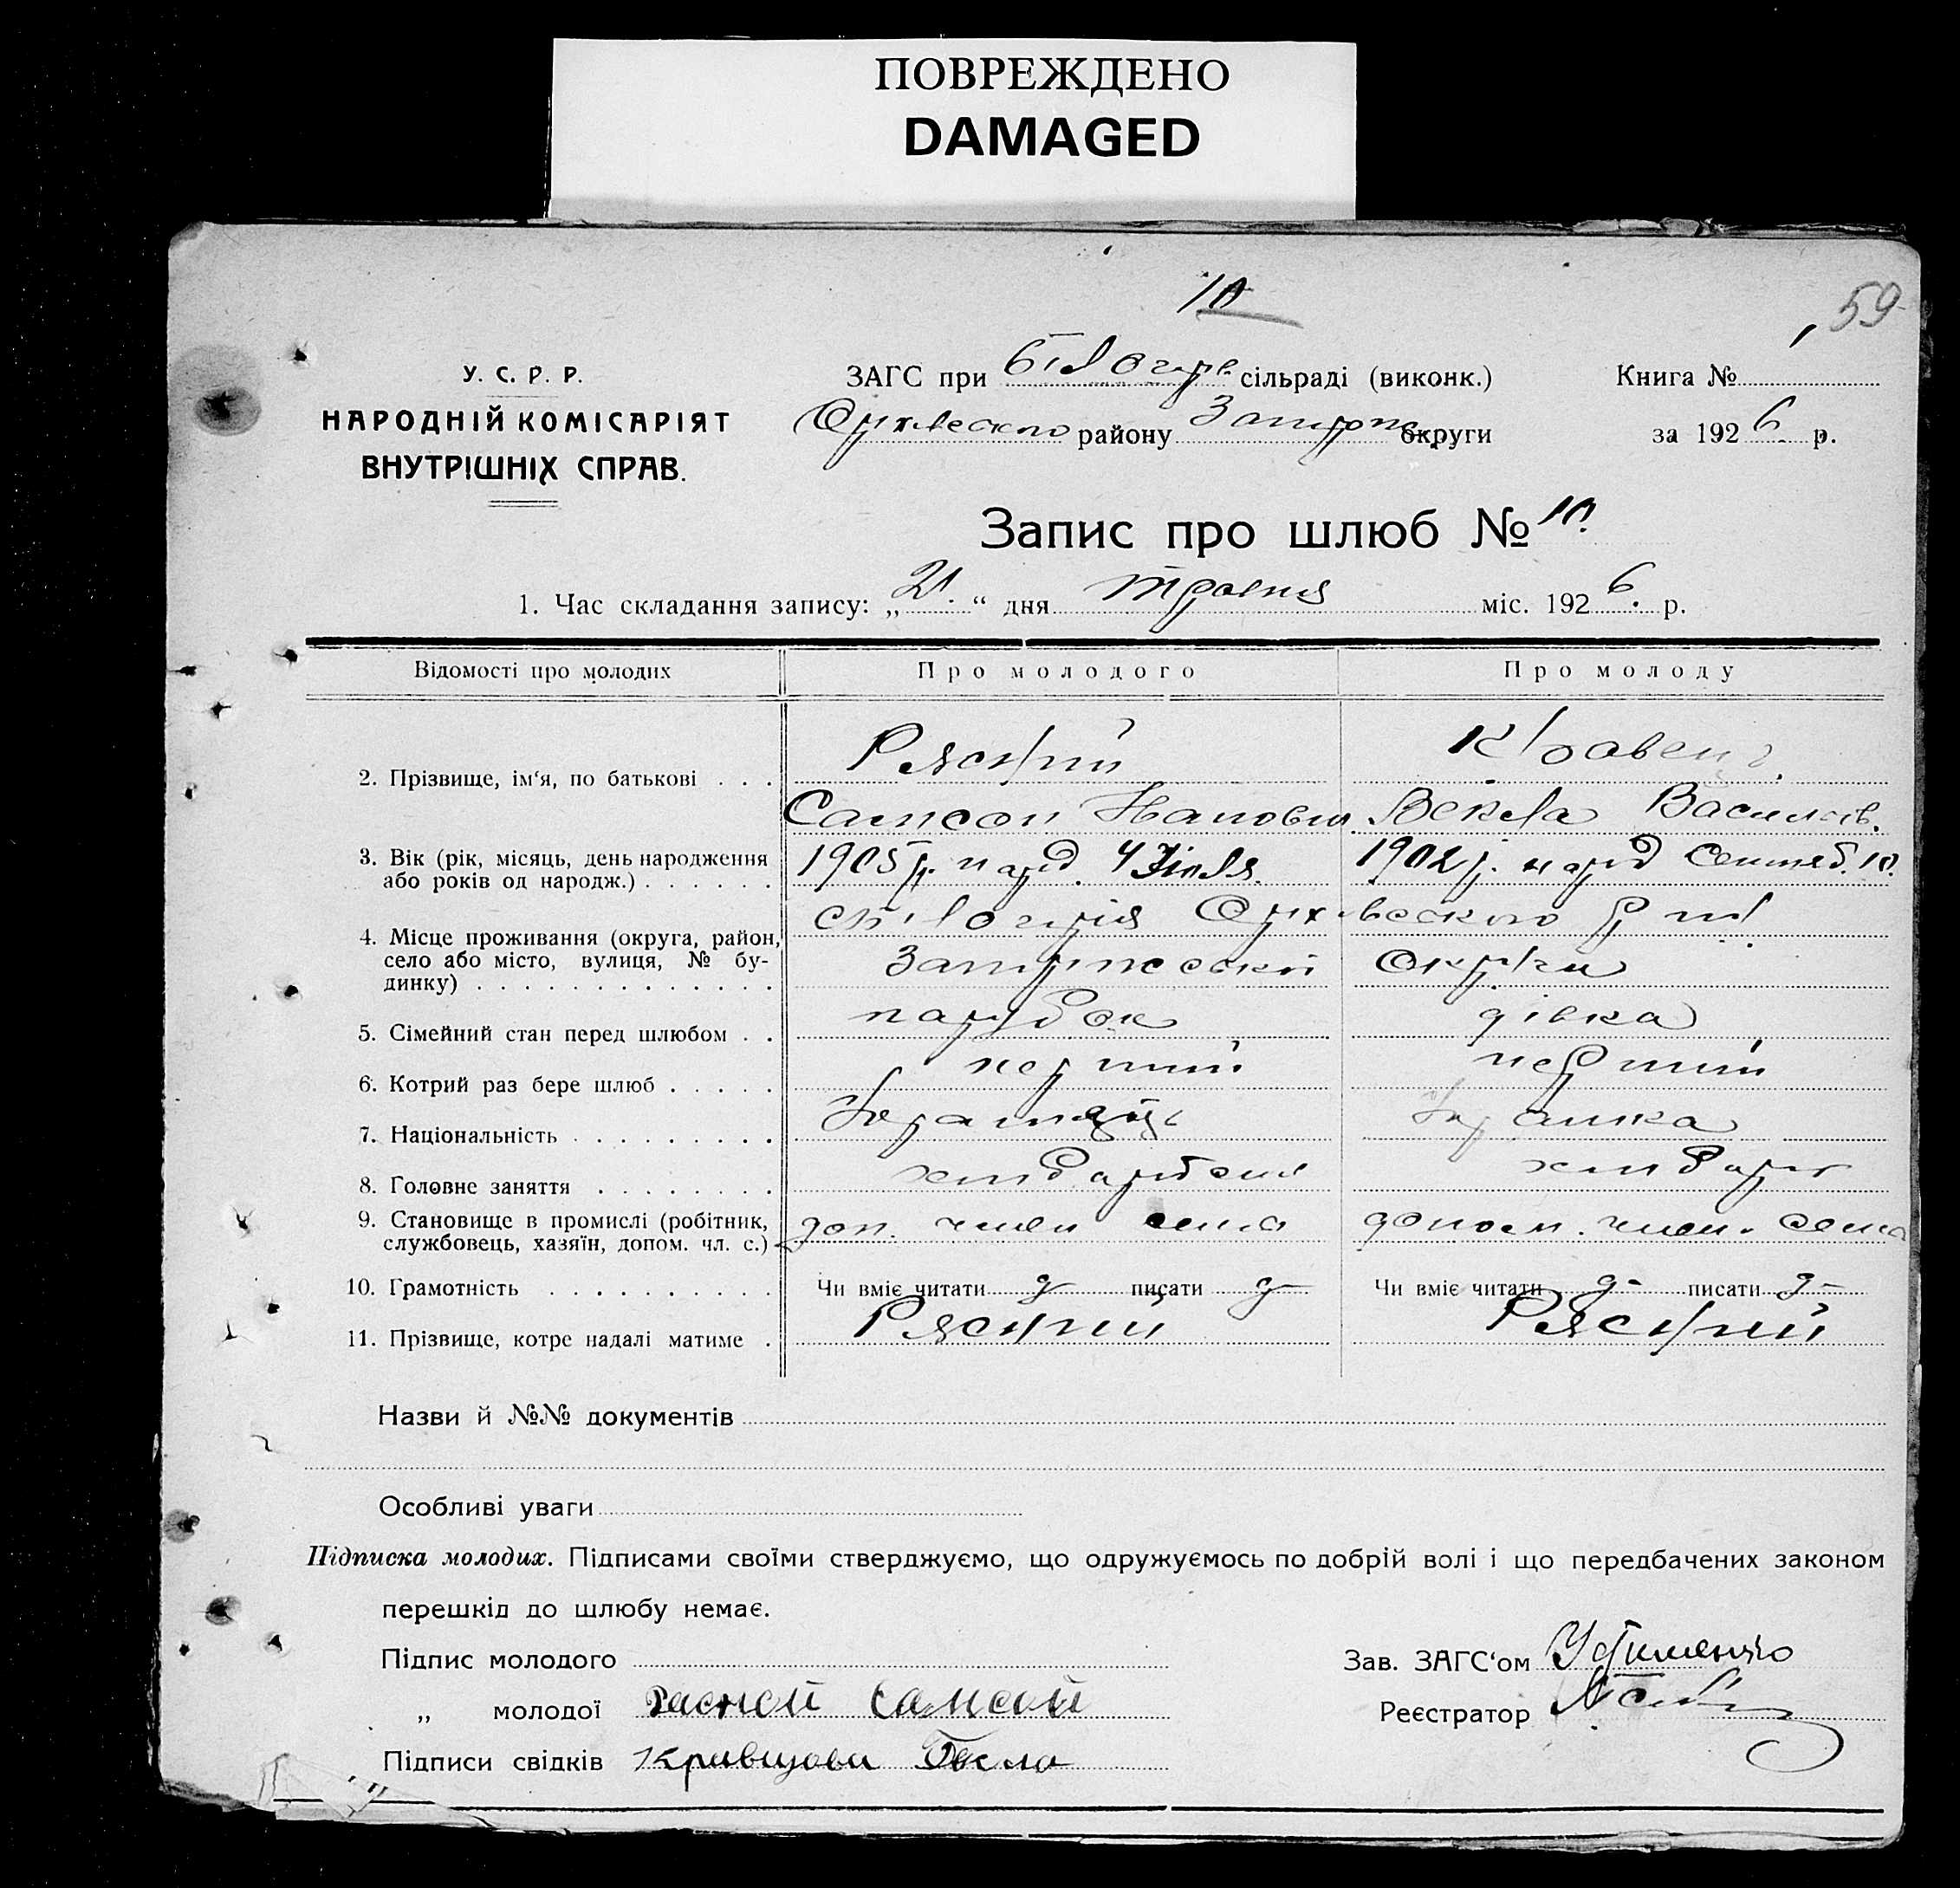 ПОВРЕЖДЕНО
DAMAGED
10
59
У. С. Р. Р.
НАРОДНІЙ КОМІСАРІЯТ
ВНУТРІШНІХ СПРАВ.
ЗАГС при Білогір. сільраді (виконк.)
Оріхівского району Запоріж. округи
Книга № 1
за 1926 р.
Запис про шлюб № 10.
1. Час складання запису: „21." дня травня міс. 1926. р.
Відомості про молодих Про молодого Про молоду
2. Прізвище, ім'я, по батькові . . . Рясний Кравець
Самсон Векла Василів.
3. Вік (рік, місяць, день народження 1905 р. нард. 4 1902 р. нард Сентяб. 10.
або років од народж.) . . . . . .
4. Місце проживання (округа, район, село або місто, вулиця, № бу-
динку) . . . . . . . . . . . . . .
Оріхівского
округи
5. Сімейний стан перед шлюбом . . парубок дівка
6. Котрий раз бере шлюб . . . . . перший перший
7. Національність . . . . . . . . .
8. Головне заняття . . . . . . . .
9. Становище в промислі (робітник, доп. член семі допом. член. семі
службовець, хазяїн, допом. чл. с.)
10. Грамотність . . . . . . . . . . Чи вміє читати писати Чи вміє читати писати
11. Прізвище, котре надалі матиме . Рясний Рясний
Назви й №№ документів
Особливі уваги
Підписка молодих. Підписами своїми стверджуємо, що одружуємось по добрій волі і що передбачених законом
перешкід до шлюбу немає.
Підпис молодого
„ молодої Расной Самсон
Підписи свідків Кравцова
Зав. ЗАГС'ом Устименко
Реєстратор